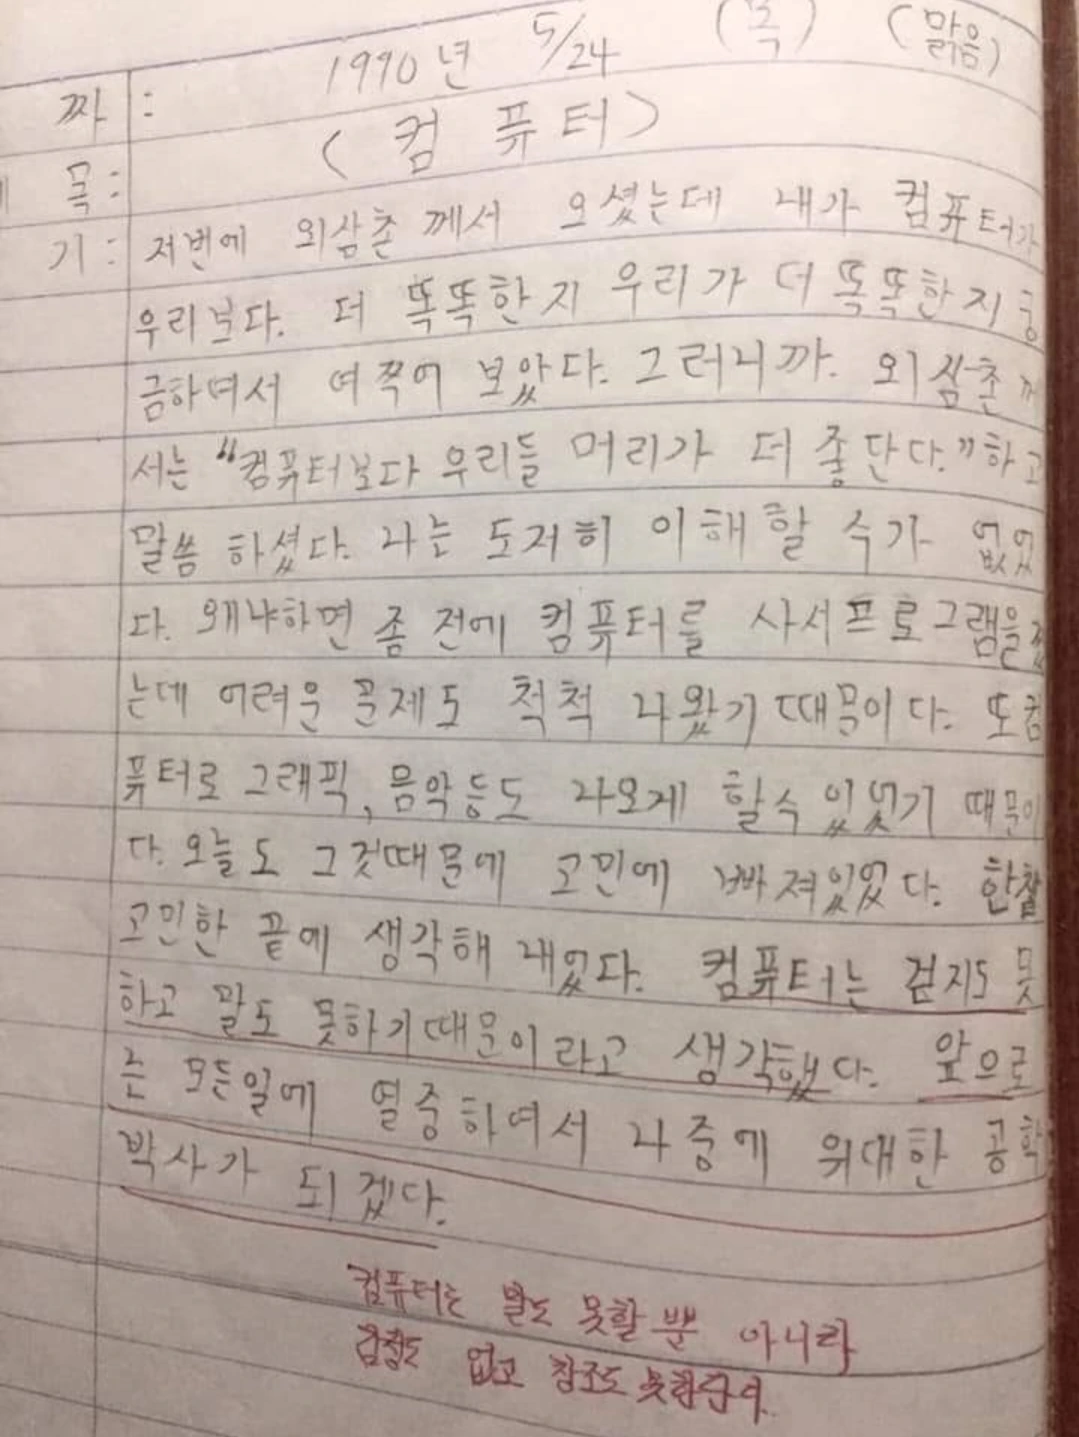 1990년 5/24 (목) (맑음)
짜 :
(컴퓨터)
목 :
기 : 저번에 외삼촌 께서 오셨는데 내가 컴퓨터가
우리보다. 더 똑똑한지 우리가 더 똑똑한지 궁
금하여서 여쭉어 보았다. 그러니까. 외삼촌께
서는 "컴퓨터보다 우리들 머리가 더 좋단다." 하고
말씀 하셨다. 나는 도저히 이해할 수가 없었
다. 왜냐하면 좀 전에 컴퓨터를 사서프로그램을
는데 어려운 문제도 척척 나왔기 때문이다. 또컴
퓨터로 그래픽, 음악등도 나오게 할수 있었기 때문이
다. 오늘도 그것때문에 고민에 빠져있었다. 한참
고민한 끝에 생각해 내었다. 컴퓨터는 걷지도 못
하고 말도 못하기때문이라고 생각했다. 앞으로
는 모든일에 열중하여서 나중에 위대한 공학
박사가 되겠다.
컴퓨터는 말도 못할 뿐 아니라
감정도 없고 창조도 못한단다.